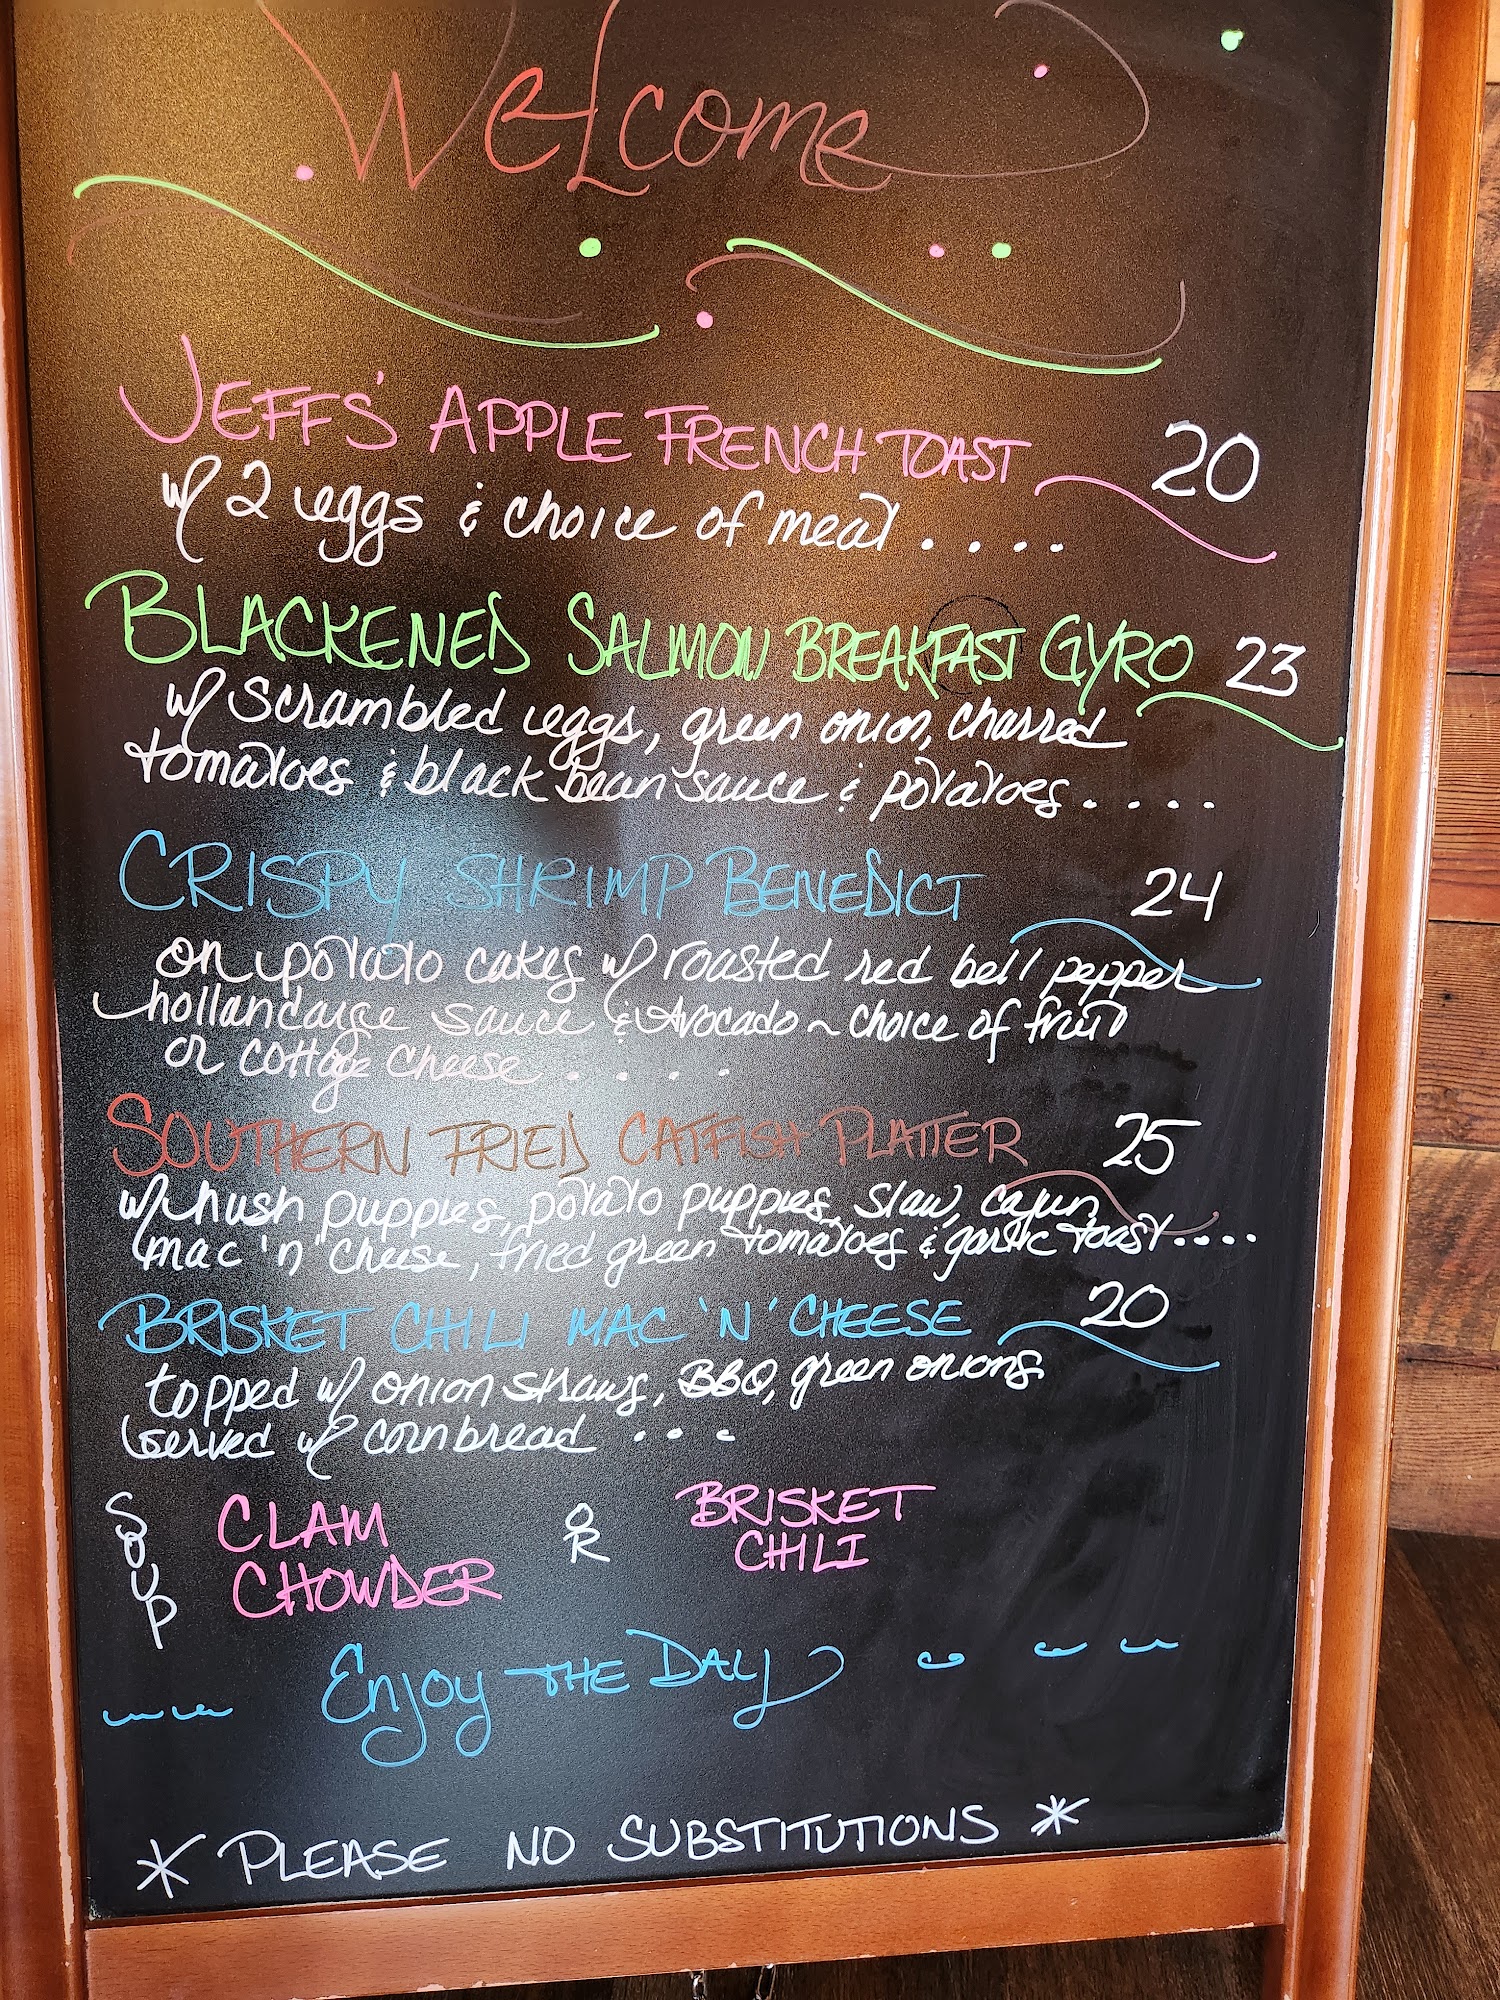 Welcome
JEFF'S APPLE FRENCH TOAST 20
w/ 2 eggs & choice of meat . . . .
BLACKENED SALMON BREAKFAST GYRO 23
w/ scrambled eggs, green onion, charred
tomatoes & black bean sauce & potatoes . . . .
CRISPY SHRIMP BENEDICT 24
on potato cakes w/ roasted red bell pepper
hollandaise sauce & Avocado ~ choice of fruit
or cottage cheese . . . .
SOUTHERN FRIED CATFISH PLATTER 25
w/ hush puppies, potato puppies, slaw, cajun
mac 'n' cheese, fried green tomatoes & garlic toast . . . .
BRISKET CHILI MAC 'N' CHEESE 20
topped w/ onion straws, BBQ, green onions
served w/ cornbread . . .
SOUP CLAM CHOWDER OR BRISKET CHILI
Enjoy THE DAY
* PLEASE NO SUBSTITUTIONS *